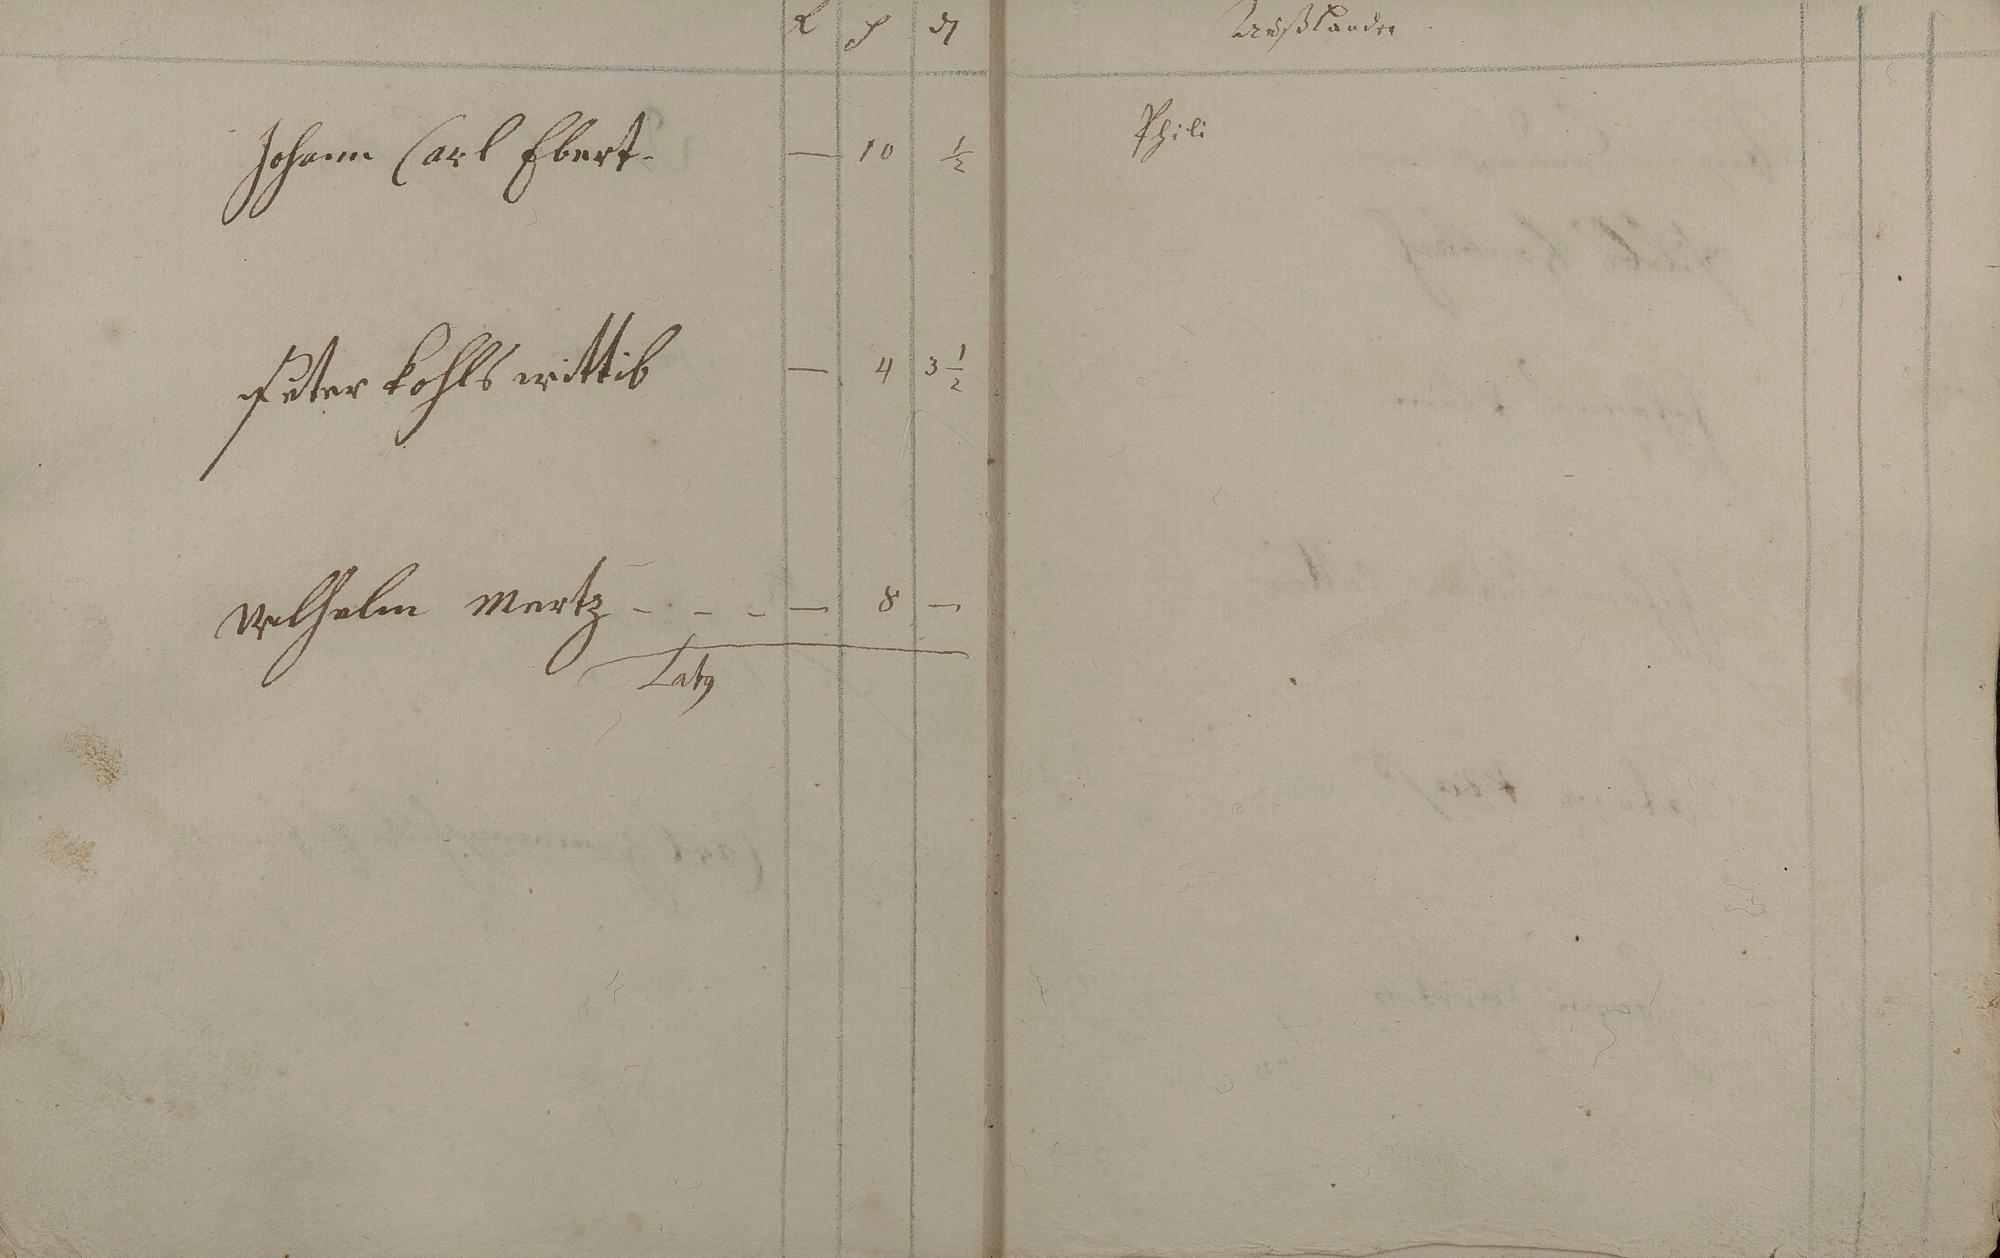 Johann Carl Ebert - — 10 ½
Peter Kohls wittib — 4 3 ½
Wilhelm Mertz - - - — 8 —
Latg
Außländer
Phili